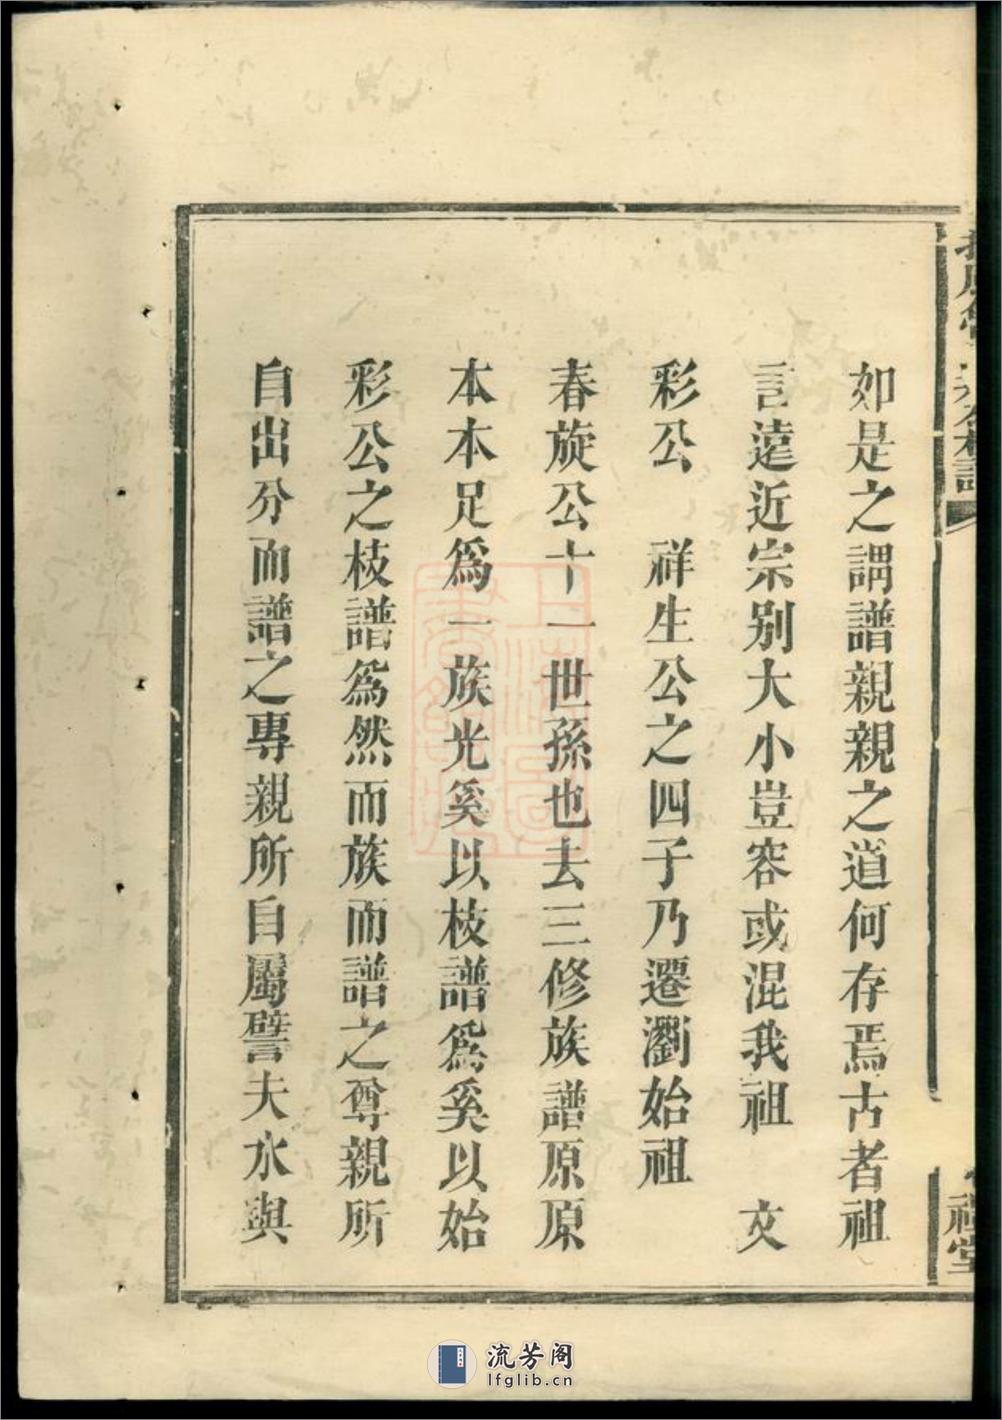 如是之謂譜親親之道何存焉古者祖
言遠近宗别大小豈容或混我祖 文
彩公 祥生公之四子乃遷瀏始祖
春旋公十一世孫也去三修族譜原原
本本足爲一族光奚以枝譜爲奚以始
彩公之枝譜爲然而族而譜之尊親所
自出分而譜之專親所自屬譬夫水與
公枝譜
禮堂
上海圖書館藏
流芳阁
lfglib.cn